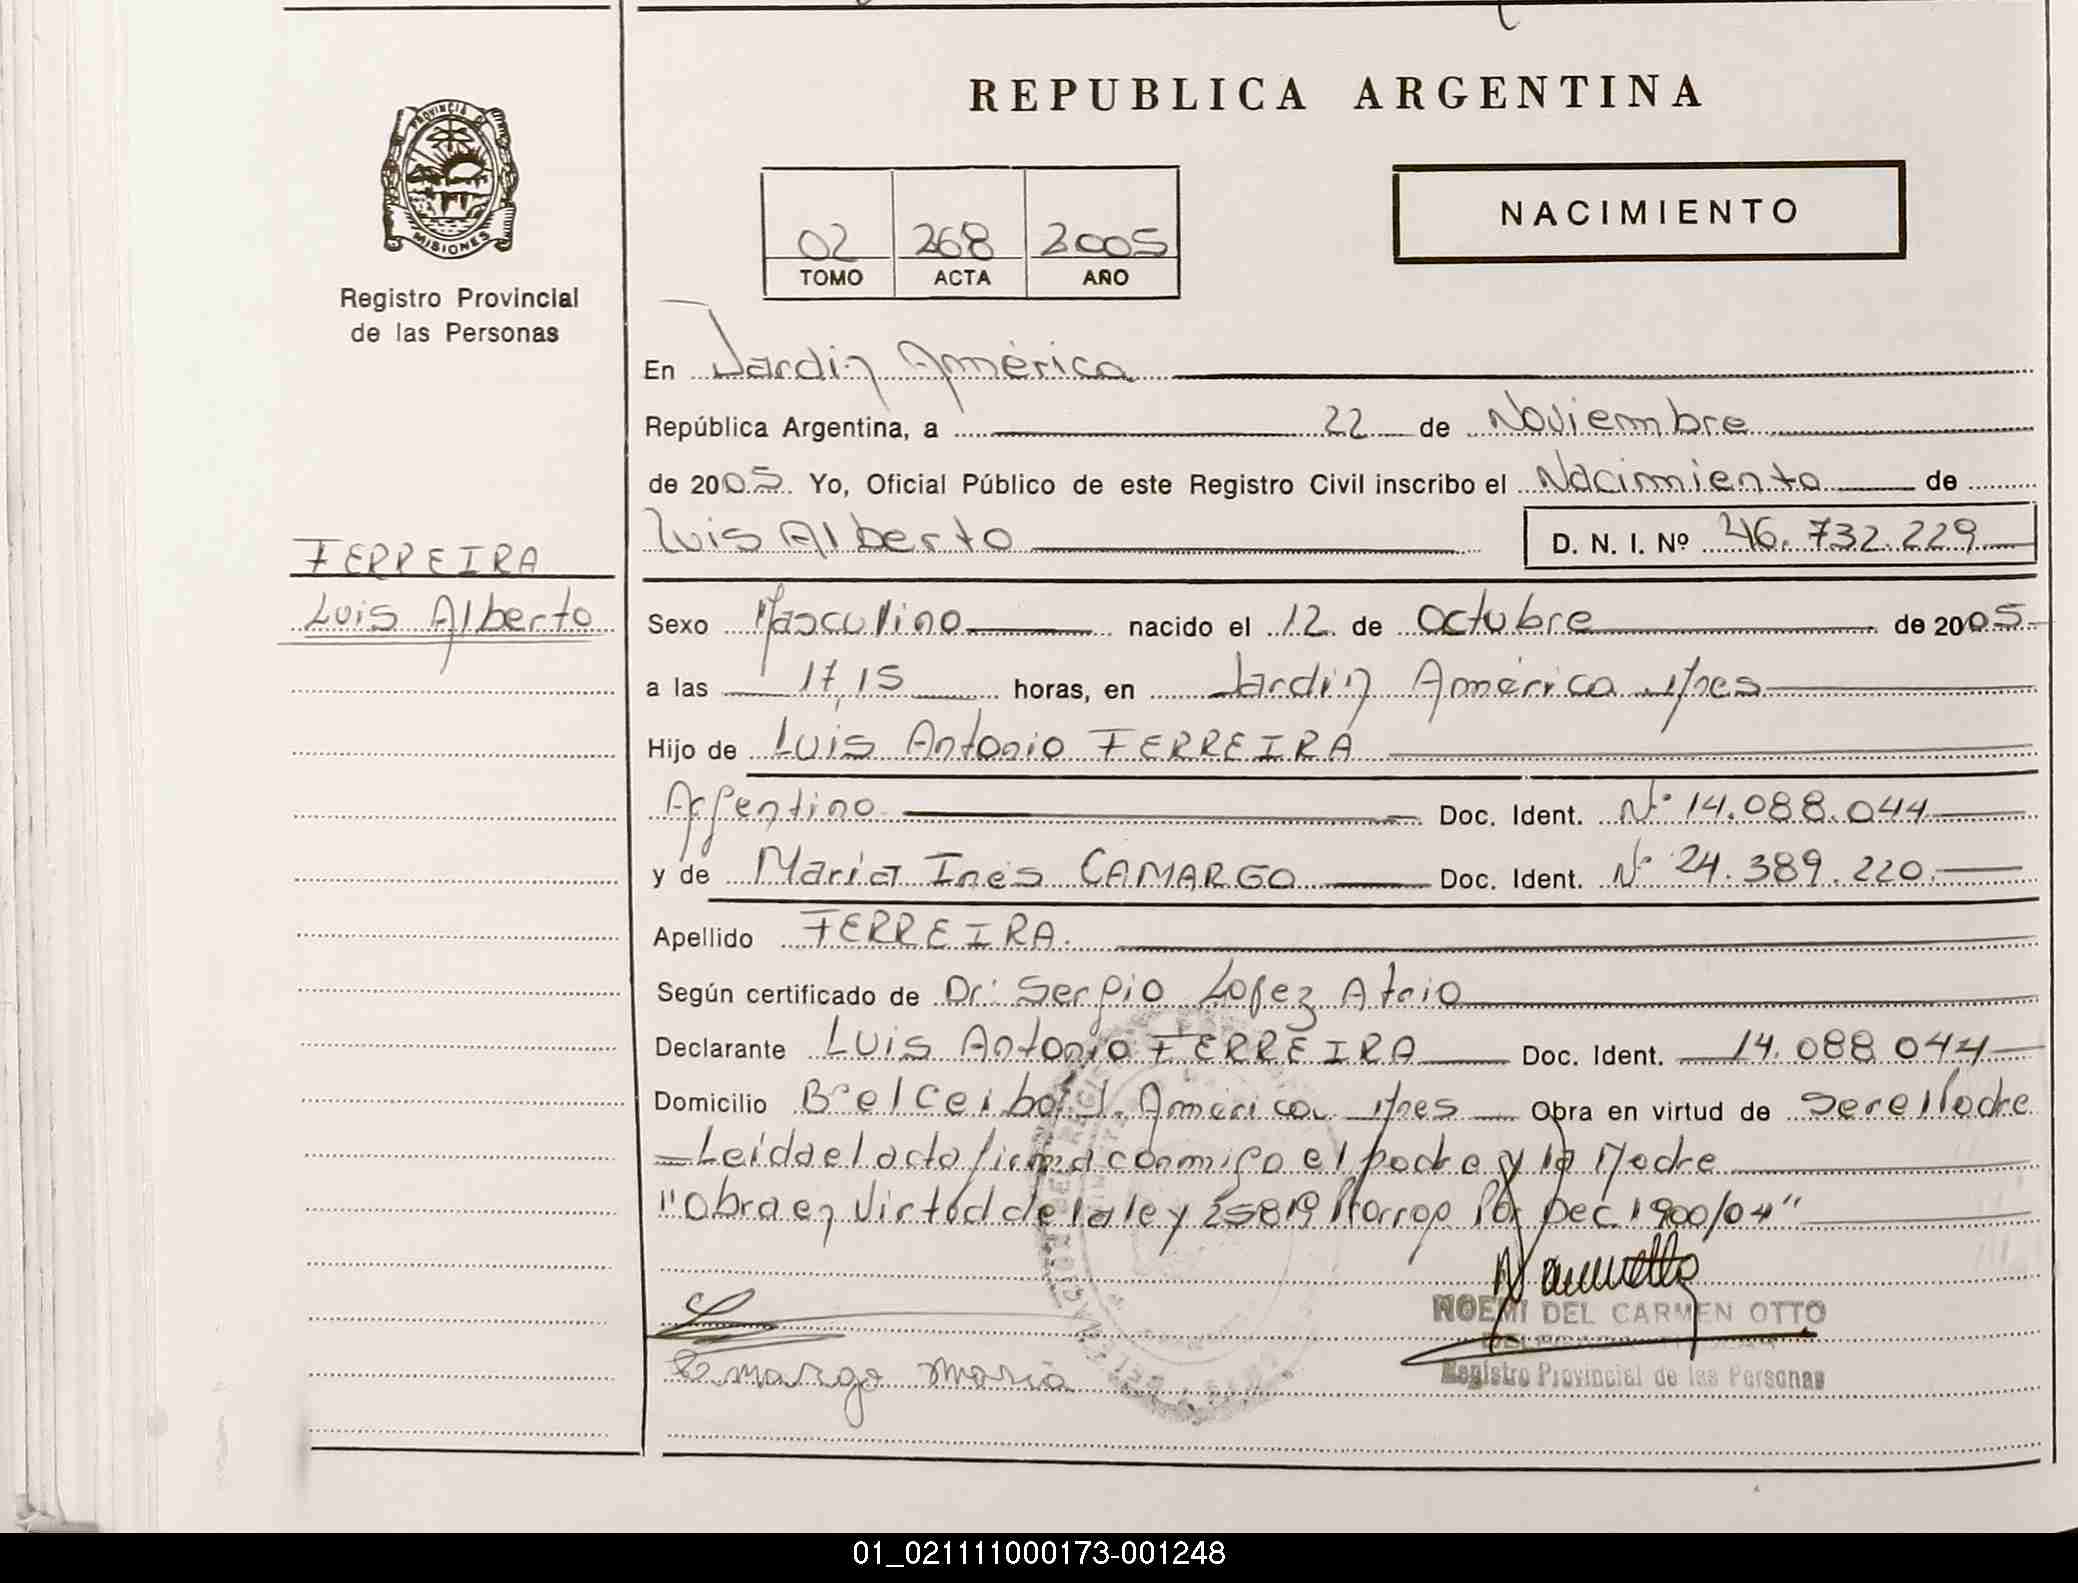 REPUBLICA ARGENTINA
PROVINCIA DE MISIONES
Registro Provincial
de las Personas
02 268 2005
TOMO ACTA AÑO
NACIMIENTO
En Jardin América
República Argentina, a 22 de Noviembre
de 2005. Yo, Oficial Público de este Registro Civil inscribo el Nacimiento de
Luis Alberto D. N. I. Nº 46.732.229
FERREIRA
Luis Alberto
Sexo Masculino nacido el 12 de Octubre de 2005
a las 17,15 horas, en Jardin América Mnes
Hijo de Luis Antonio FERREIRA
Argentino Doc. Ident. Nº 14.088.044
y de María Inés CAMARGO Doc. Ident. Nº 24.389.220
Apellido FERREIRA.
Según certificado de Dr: Sergio Lopez Atrio
Declarante Luis Antonio FERREIRA Doc. Ident. 14.088.044
Domicilio Bº el Ceibo J. América Mnes Obra en virtud de ser el Padre
Leida el acta firma conmigo el padre y la Madre
"Obra en Virtud de la ley 25819 Prorrog Por Dec. 1900/04"
NOEMI DEL CARMEN OTTO
Registro Provincial de las Personas
Camargo Maria
01_021111000173-001248